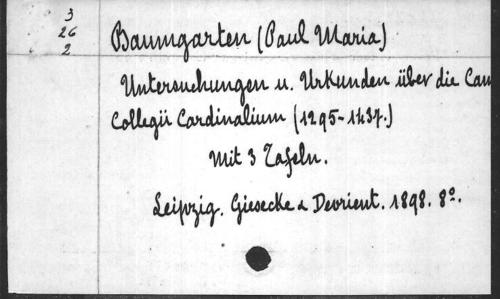 3
26
2
Baumgarten (Paul Maria)
Untersuchungen u. Urkunden über die Cam
Collegii Cardinalium (1295-1437.)
Mit 3 Tafeln.
Leipzig. Giesecke & Devrient. 1898. 8º.